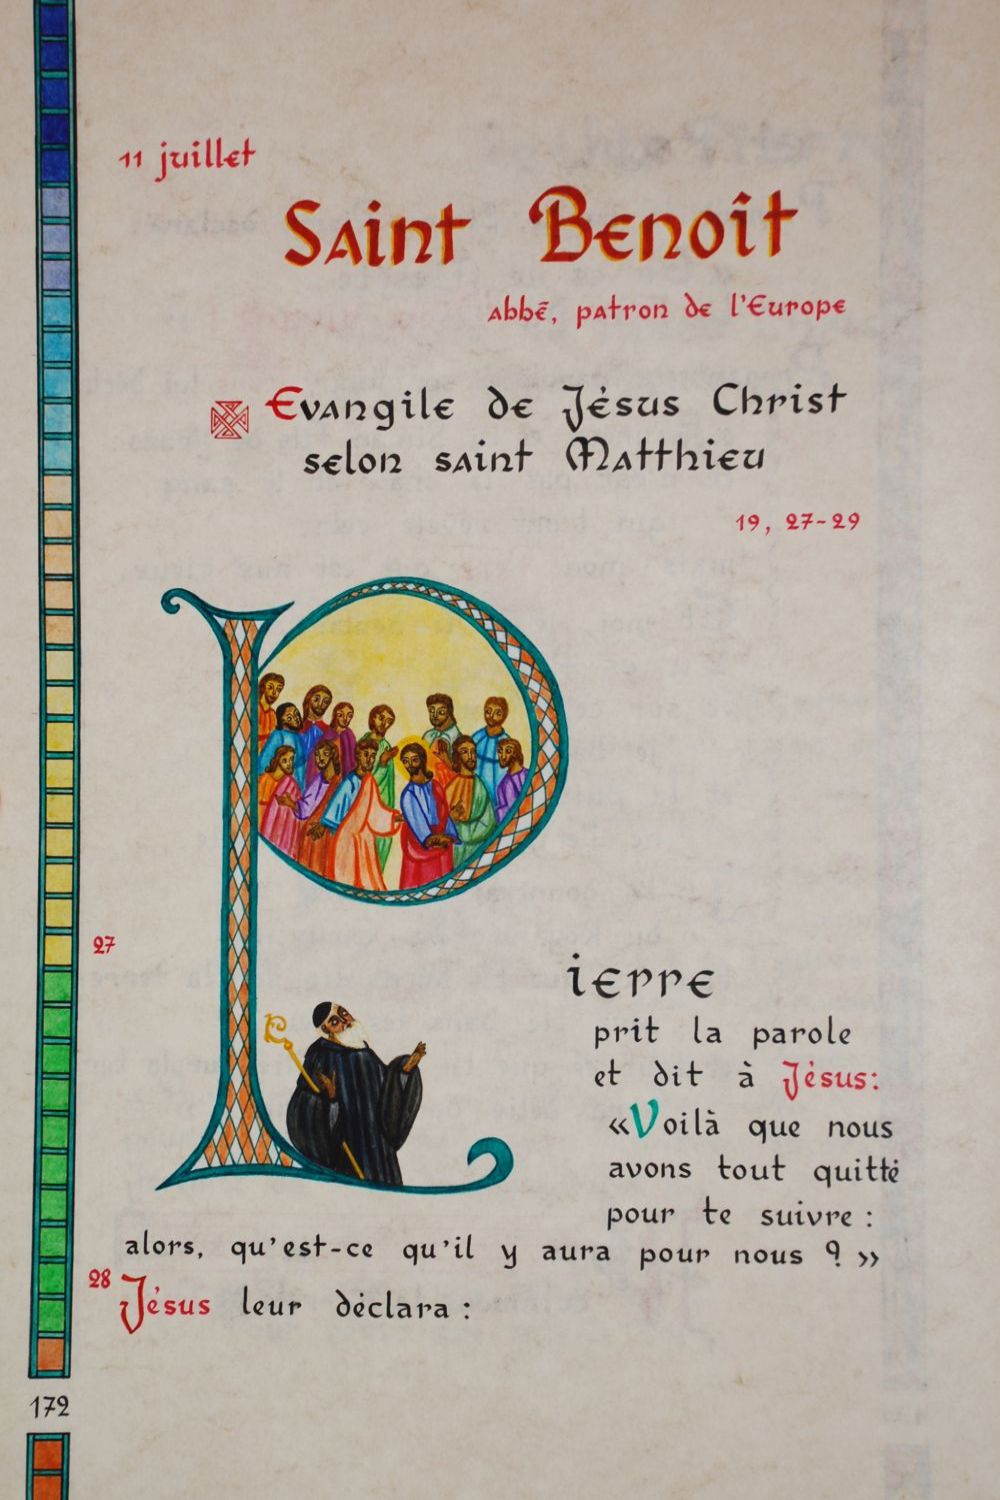 11 juillet
Saint Benoît
abbé, patron de l'Europe
Evangile de Jésus Christ
selon saint Matthieu
19, 27-29
27
Pierre
prit la parole
et dit à Jésus:
«Voilà que nous
avons tout quitté
pour te suivre :
alors, qu'est-ce qu'il y aura pour nous ? »
28 Jésus leur déclara :
172